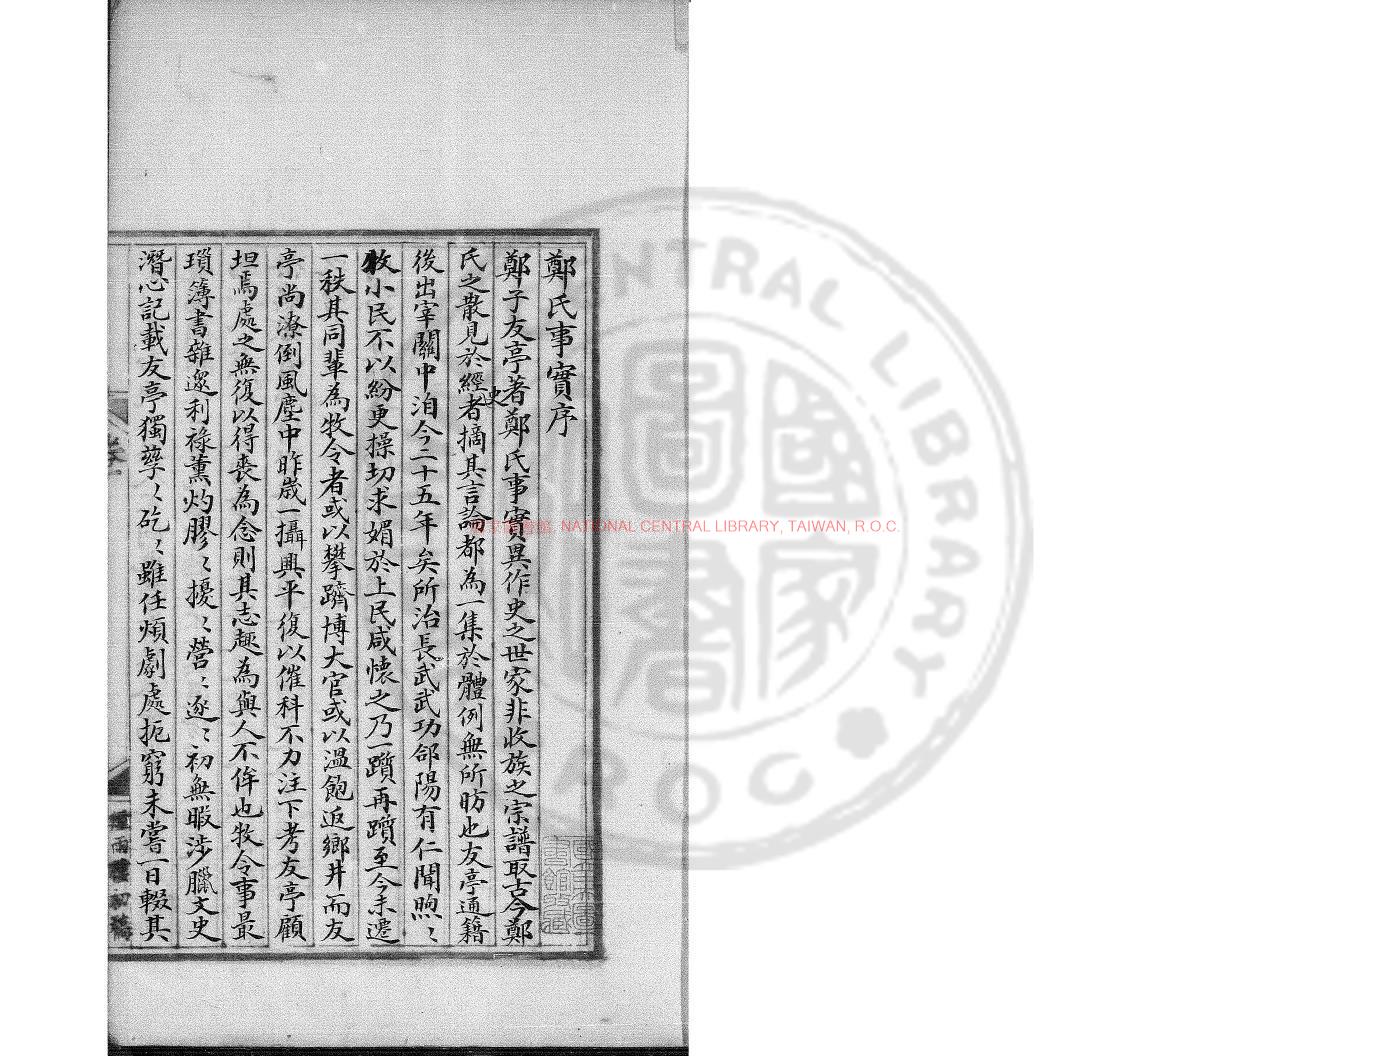 鄭氏事實序
鄭子友亭著鄭氏事實異作史之世家非收族之宗譜取古今鄭
氏之散見於經史者摘其言論都為一集於體例無所昉也友亭通籍
後出宰關中洎今二十五年矣所治長武武功郃陽有仁聞煦〻
牧小民不以紛更操切求媚於上民咸懷之乃一躓再躓至今未遷
一秩其同輩為牧令者或以攀躋博大官或以溫飽返鄉井而友
亭尚潦倒風塵中昨歲一攝興平復以催科不力注下考友亭顧
坦焉處之無復以得喪為念則其志趣為與人不侔也牧令事最
瑣簿書雜遝利祿薰灼膠〻擾〻營〻逐〻初無暇涉臘文史
潛心記載友亭獨孳〻矻〻雖任煩劇處扼窮未嘗一日輟其
NATIONAL CENTRAL LIBRARY, TAIWAN, R.O.C.
CENTRAL LIBRARY
ROC
國家圖書